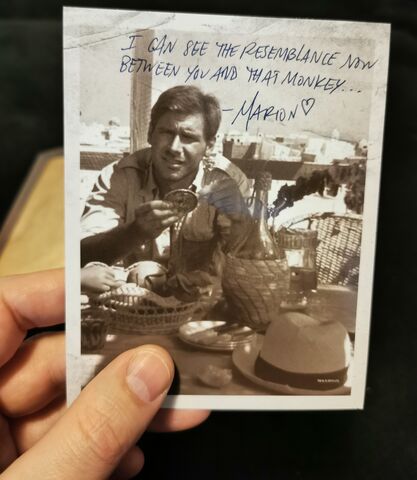 I CAN SEE THE RESEMBLANCE NOW
BETWEEN YOU AND THAT MONKEY...
-MARION♡